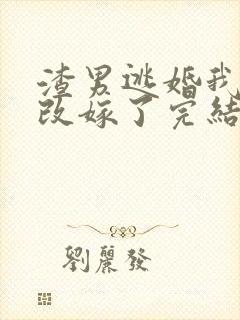 渣男逃婚我
改嫁了完結
劉麗發